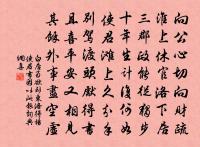 向公心切向財疏
淮上休官洛下居
三郡政能從獨步
十年生計復何如
使君灘上久分手
別駕渡頭先得書
且喜平安又相見
其餘外事盡空虛
白居易欲到東洛得楊
使君書因以此報詞典
網